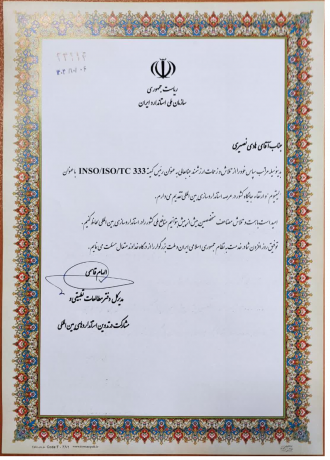 ریاست جمهوری
سازمان ملی استاندارد ایران
جناب آقای هادی نصیری
بدینوسیله مراتب سپاس خود را از تلاش و زحمات ارزشمند جنابعالی، بعنوان رئیس کمیته INSO/ISO/TC 333 با عنوان
لیتیوم و ارتقاء جایگاه کشور در عرصه استانداردسازی بین المللی تقدیم می دارم.
امید است با همت و تلاش مضاعف متخصصین بیش از پیش بتوانیم منافع ملی کشور را در استانداردسازی بین المللی لحاظ کنیم.
توفیق روزافزون شما در خدمت به نظام جمهوری اسلامی ایران و ملت بزرگوار را از درگاه خداوند متعال مسئلت می نمایم.
الهام قاسمی
مدیرکل دفتر مطالعات تطبیقی و
مشارکت در تدوین استانداردهای بین المللی